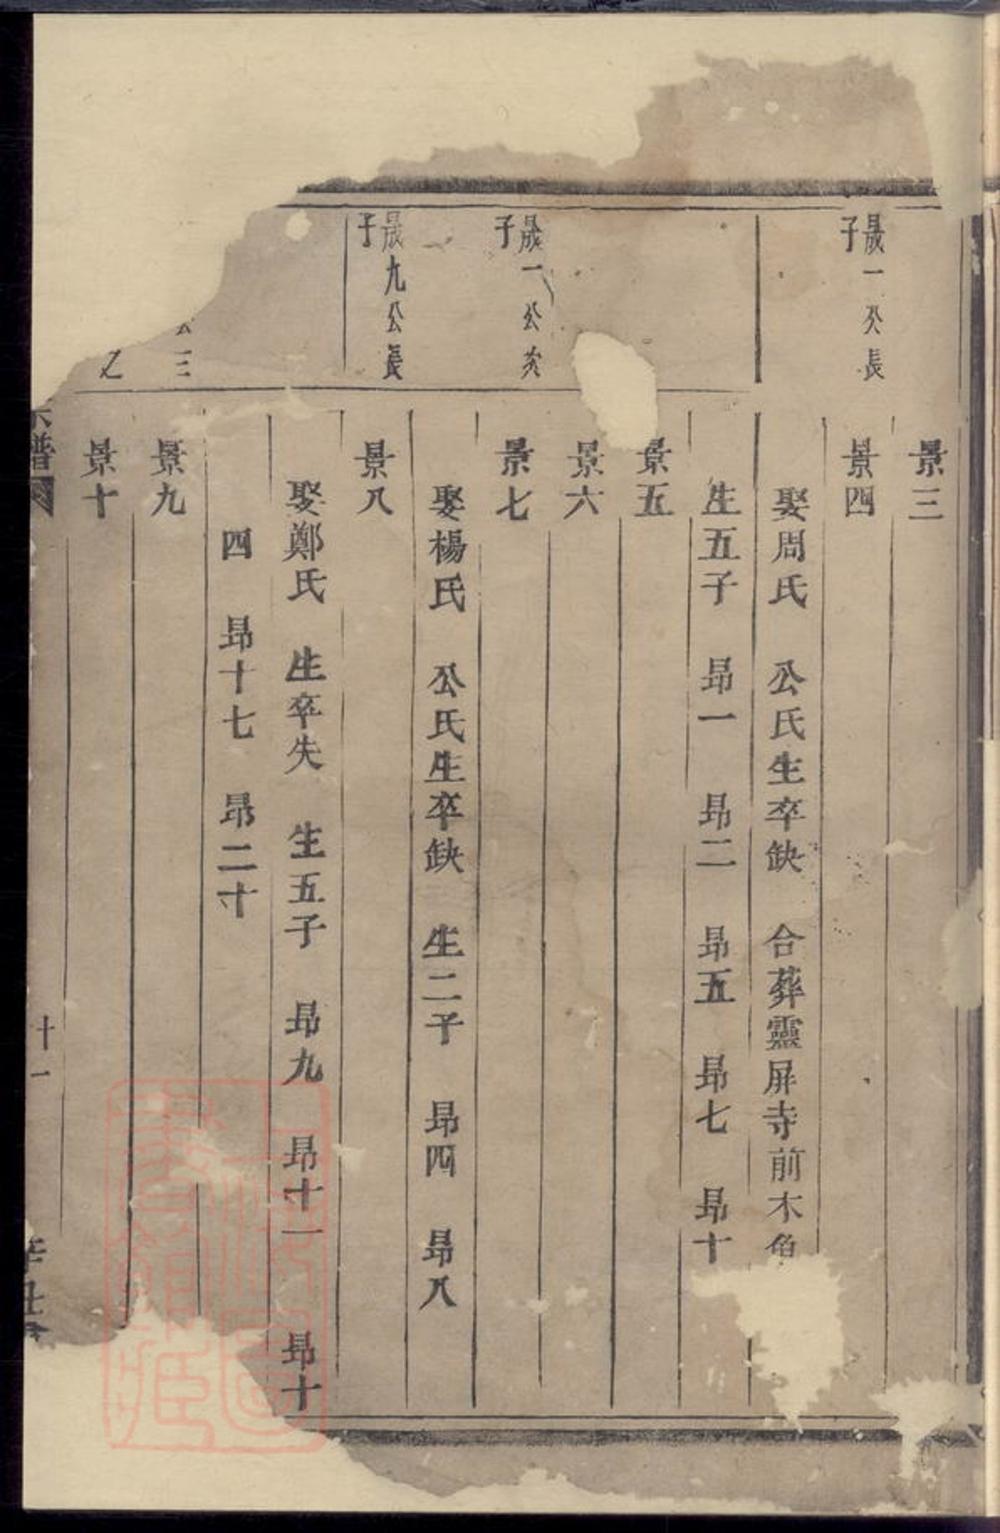 景三
晟一公長
子
景四
娶周氏 公氏生卒缺 合葬靈屏寺前木魚
生五子 昻一 昻二 昻五 昻七 昻十
景五
景六
晟一公次
子
景七
娶楊氏 公氏生卒缺 生二子 昻四 昻八
晟九公長
子
景八
娶鄭氏 生卒失 生五子 昻九 昻十一 昻十
四 昻十七 昻二十
公三
景九
之
景十
宗譜
十一